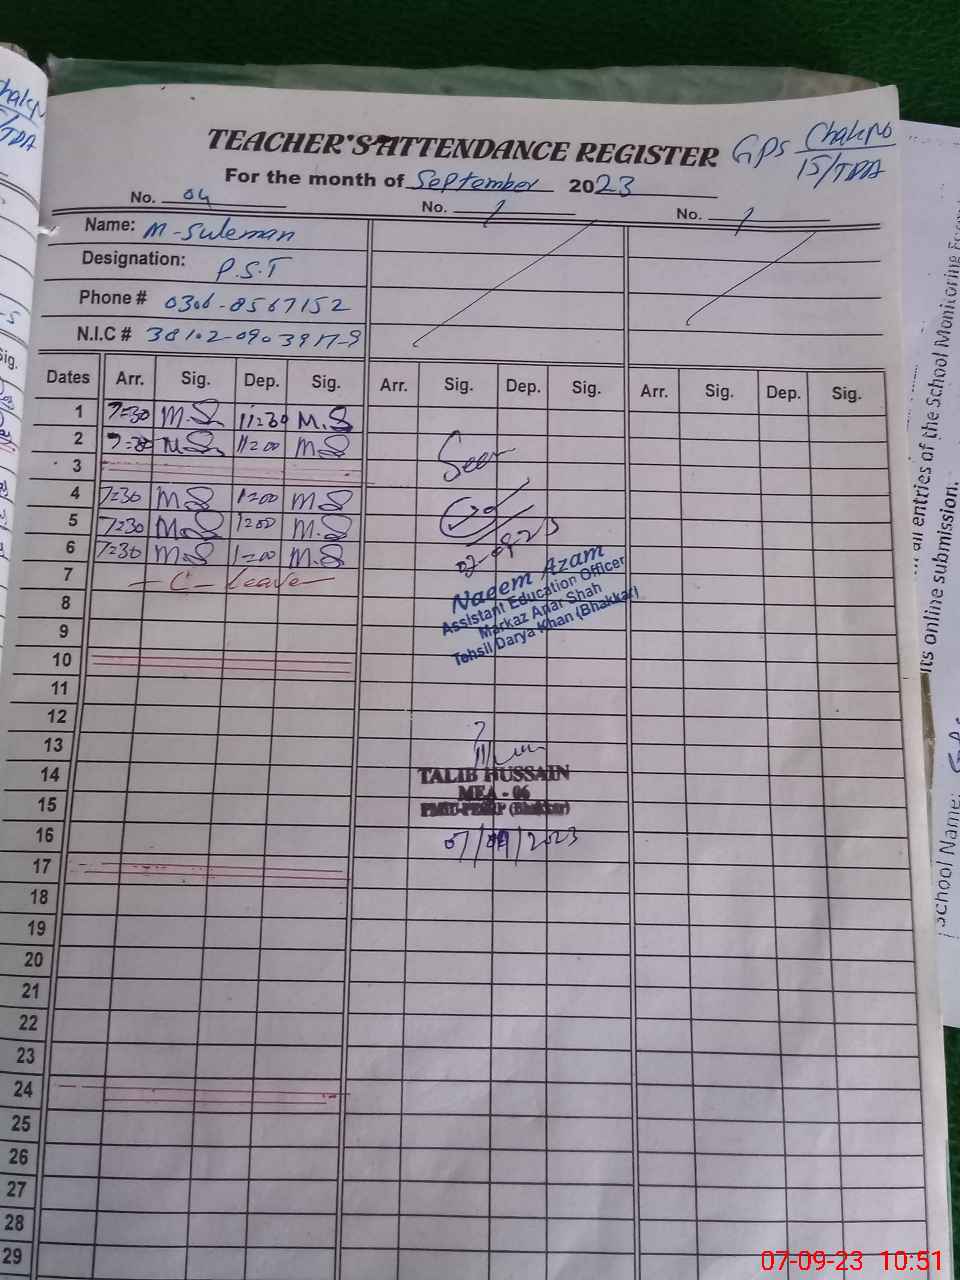 TEACHER'S ATTENDANCE REGISTER GPS Chak No
15/TDA
For the month of September 2023
No. 04 No. No.
Name: M-Suleman
Designation: P.S.T
Phone # 0306-8567152
N.I.C # 38102-0903917-9
Dates Arr. Sig. Dep. Sig. Arr. Sig. Dep. Sig. Arr. Sig. Dep. Sig.
1 7=30 M.S 11=30 M.S
2 7=30 M.S 11=00 M.S
3
4 7=30 M.S 1=00 M.S
5 7=30 M.S 1=00 M.S
6 7=30 M.S 1=00 M.S
7 - C - Leave
8
9
10
11
12
13
14
15
16
17
18
19
20
21
22
23
24
25
26
27
28
29
Seen
07-09-23
Naeem Azam
Assistant Education Officer
Markaz Anar Shah
Tehsil Darya Khan (Bhakkar)
TALIB HUSSAIN
MEA - 06
(Bhakkar)
07/09/2023
all entries of the School Monitoring
its online submission.
School Name:
Chak No
/TDA
Sig.
07-09-23 10:51